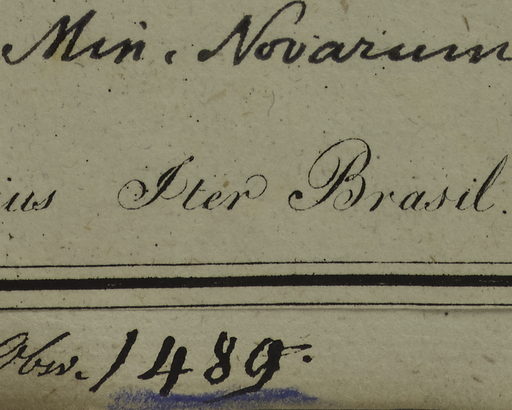 Min. Novarum
ius Iter Brasil.
Obs. 1489.